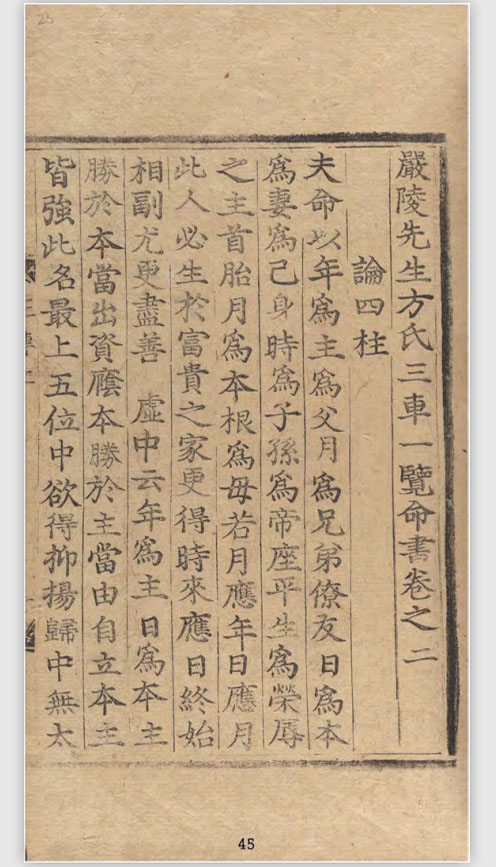 嚴陵先生方氏三車一覽命書卷之二
論四柱
夫命以年爲主爲父月爲兄弟僚友日爲本
爲妻爲己身時爲子孫爲帝座平生爲榮辱
之主首胎月爲本根爲毋若月應年日應月
此人必生於富貴之家更得時來應日終始
相副尤更盡善 虛中云年爲主日爲本主
勝於本當出資廕本勝於主當由自立本主
皆強此名最上五位中欲得抑揚歸中無太
23
45